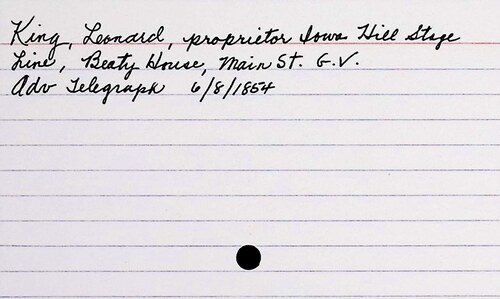 King, Leonard, proprietor Iowa Hill Stage
Line, Beaty House, Main St. G.V.
Adv Telegraph 6/8/1854